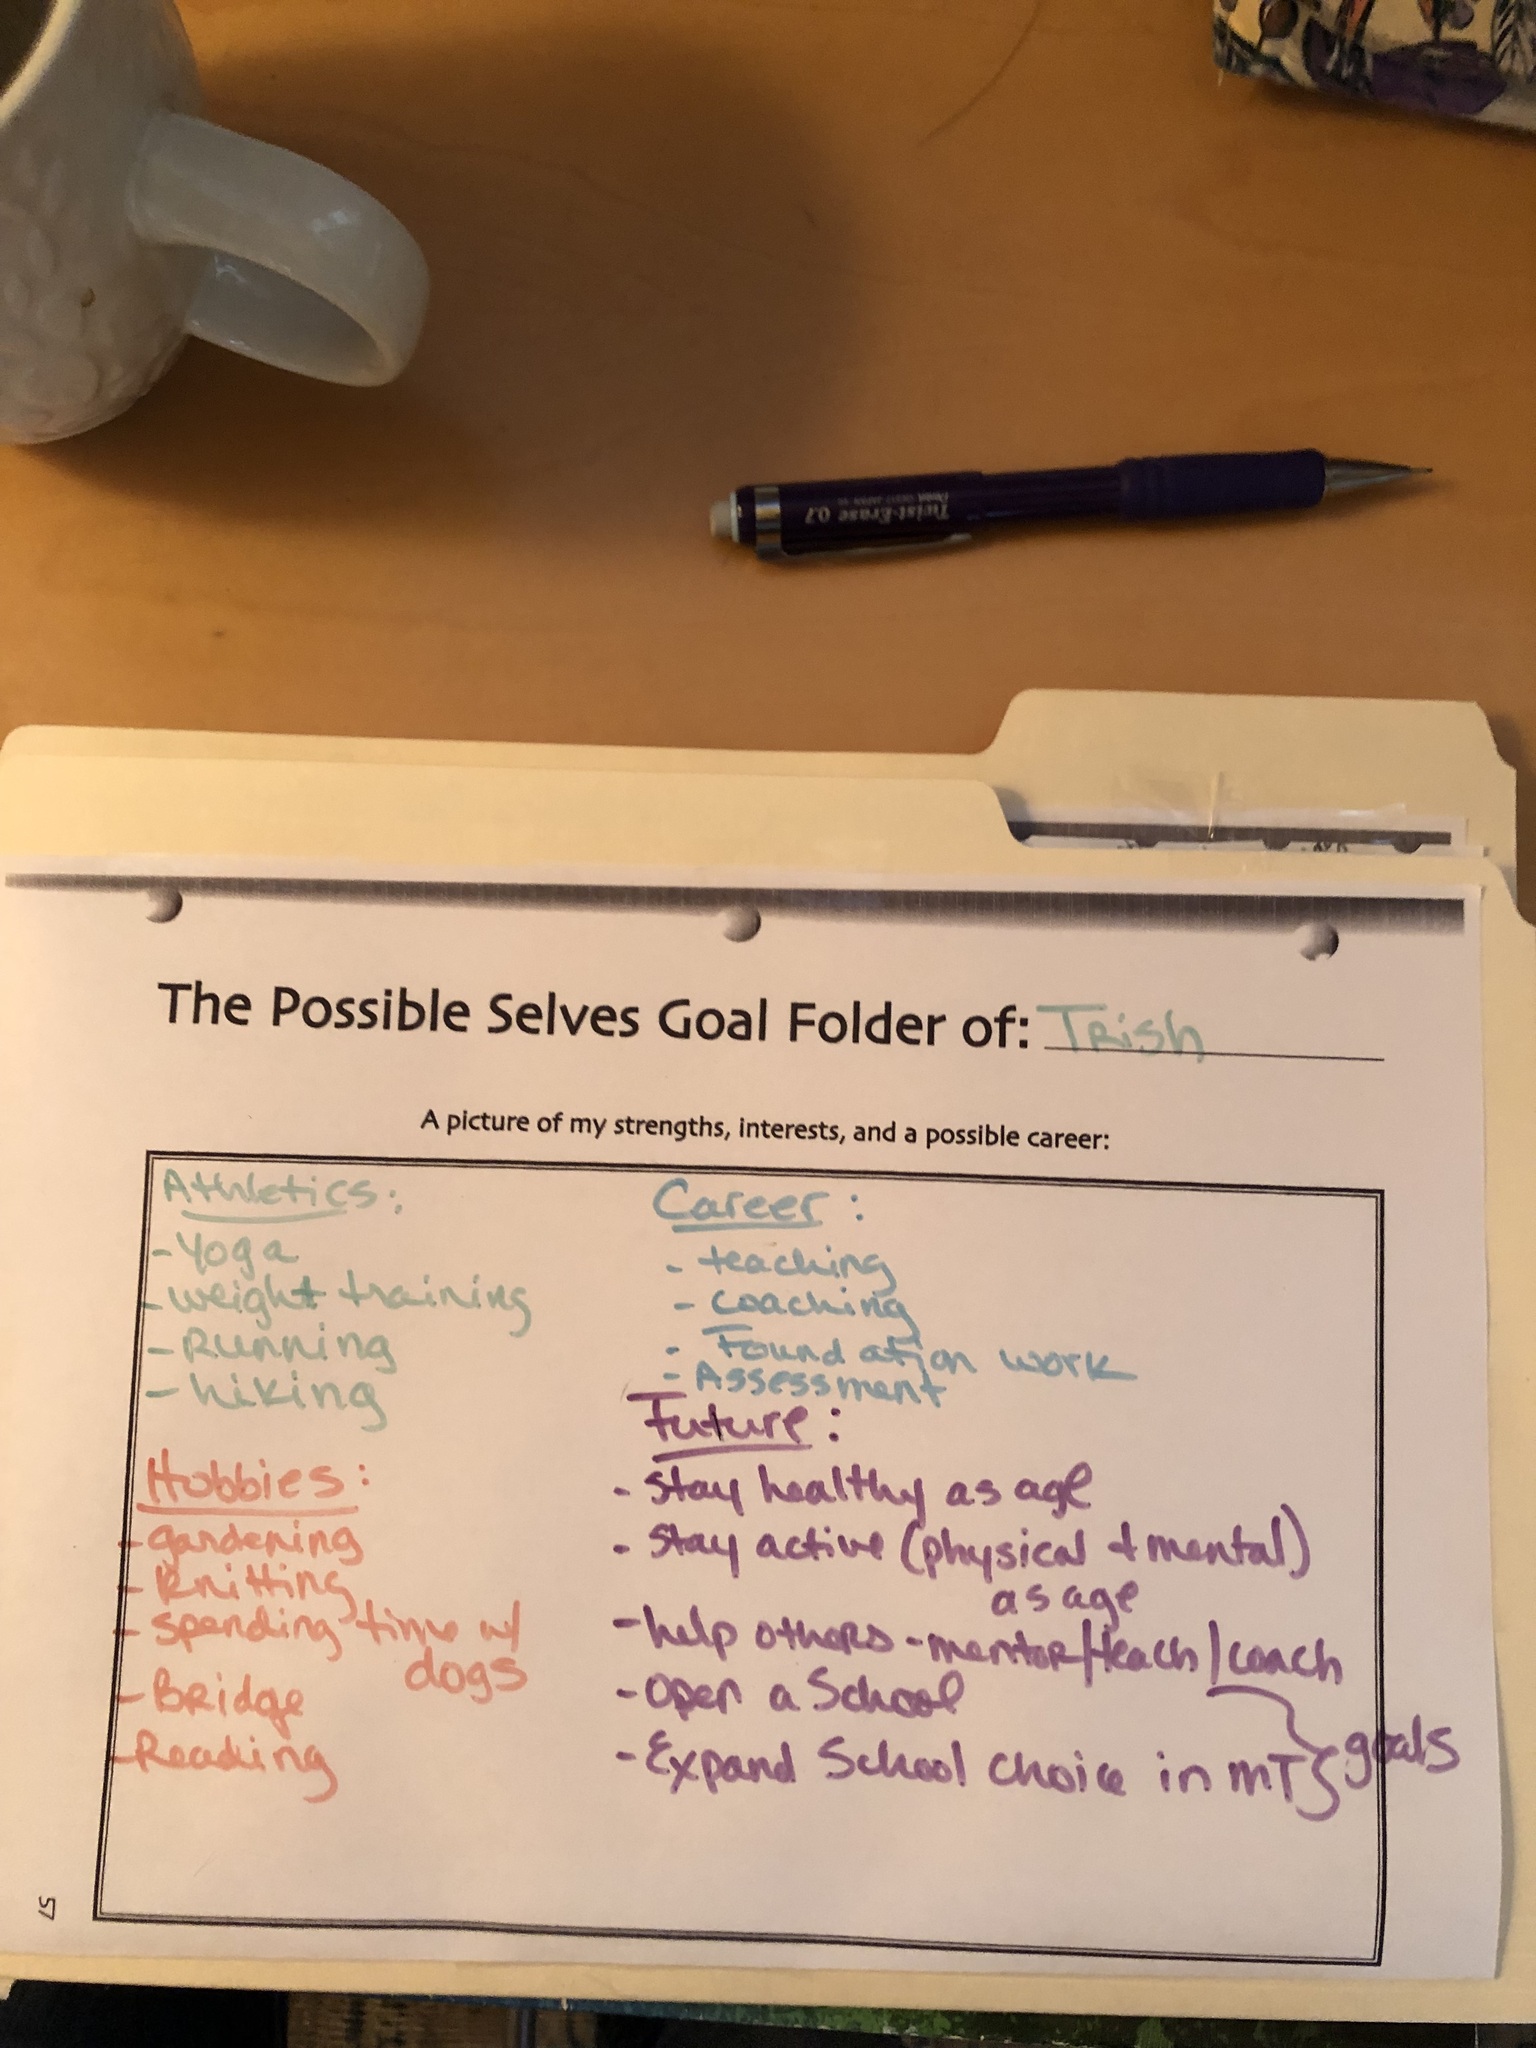 Twist-Erase 0.7
The Possible Selves Goal Folder of: Trish
A picture of my strengths, interests, and a possible career:
Athletics:
- Yoga
- weight training
- Running
- hiking
Hobbies:
- gardening
- Knitting
- spending time w/
dogs
- Bridge
- Reading
Career:
- teaching
- coaching
- Foundation work
- Assessment
Future:
- stay healthy as age
- stay active (physical + mental)
as age
- help others - mentor/teach/coach
- open a School
- Expand School choice in MT } goals
57